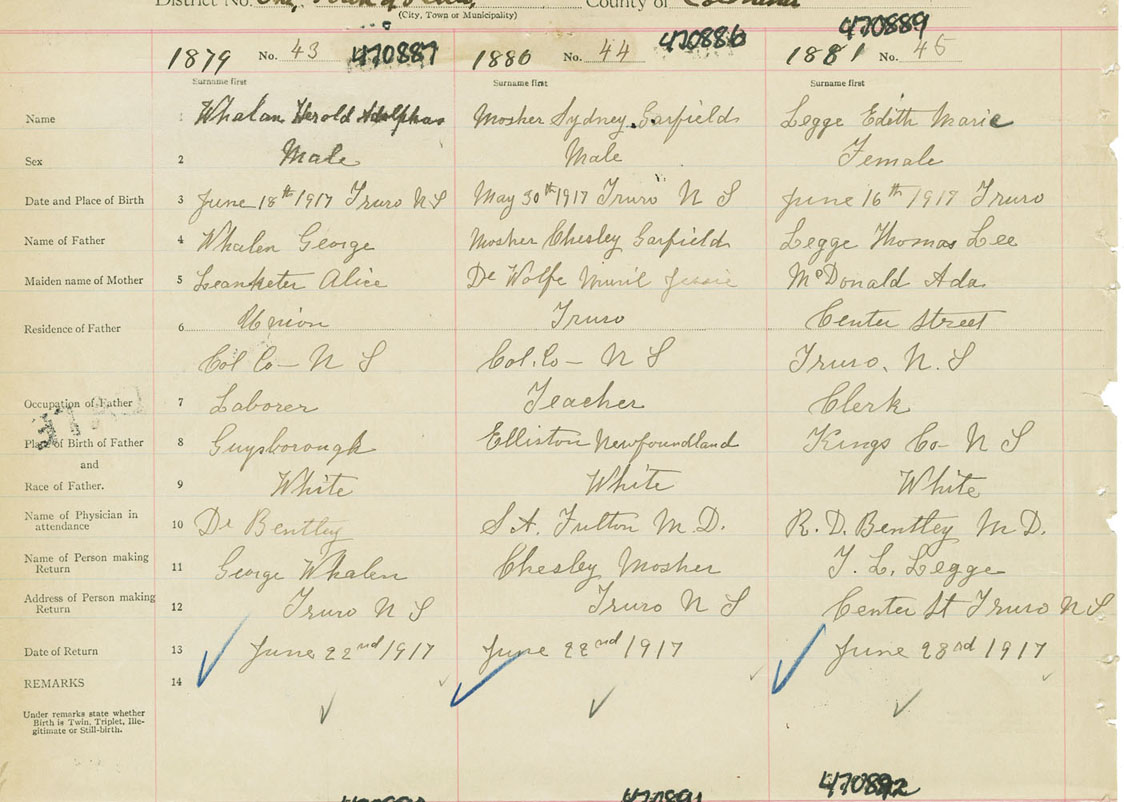 District No. One, Town of Truro, County of Colchester
(City, Town or Municipality)
470887 470886 470889
1879 No. 43 1880 No. 44 1881 No. 45
Surname first Surname first Surname first
Name 1 Whalen Herold Adolphas Mosher Sydney Garfield Legge Edith Marie
Sex 2 Male Male Female
Date and Place of Birth 3 June 18th 1917 Truro N S May 30th 1917 Truro N S June 16th 1917 Truro
Name of Father 4 Whalen George Mosher Chesley Garfield Legge Thomas Lee
Maiden name of Mother 5 Alice De Wolfe Muril Jessie McDonald Ada
Residence of Father 6 Union Truro Center Street
Col Co - N S Col. Co - N S Truro. N. S
Occupation of Father 7 Laborer Teacher Clerk
Place of Birth of Father 8 Guysborough Elliston Newfoundland Kings Co - N S
and
Race of Father. 9 White White White
Name of Physician in
attendance 10 Dr Bentley S. A. Fulton M. D. R. D. Bentley M D.
Name of Person making
Return 11 George Whalen Chesley Mosher T. L. Legge
Address of Person making
Return 12 Truro N S Truro N S Center St Truro N S
Date of Return 13 June 22nd 1917 June 22nd 1917 June 23rd 1917
REMARKS 14
Under remarks state whether
Birth is Twin, Triplet, Ille-
gitimate or Still-birth.
470892